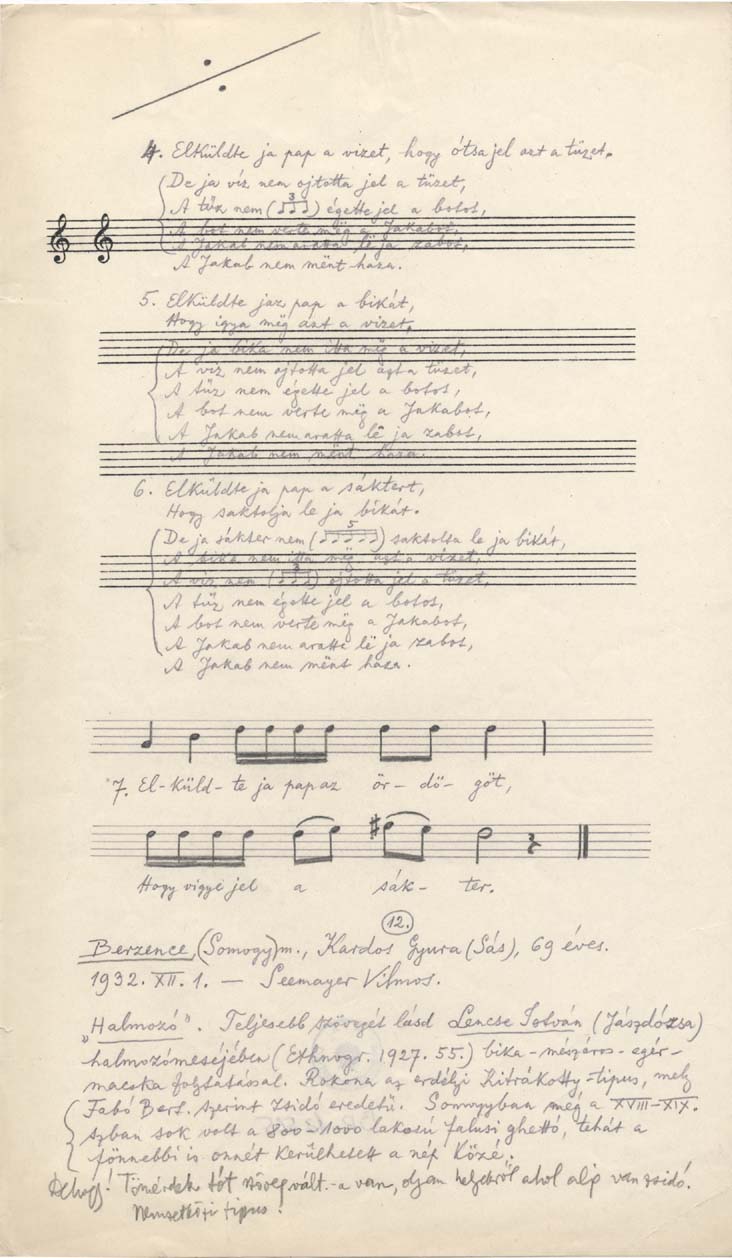 4. Elküldte ja pap a vizet, hogy ótsa jel azt a tüzet.
De ja víz nem ojtotta jel a tüzet,
A tűz nem (3) égette jel a botot,
A bot nem verte mëg a Jakabot,
A Jakab nem aratta lë ja zabot,
A Jakab nem mënt haza.
5. Elküldte jaz pap a bikát,
Hogy igya mëg azt a vizet,
De ja bika nem itta mëg a vizet,
A víz nem ojtotta jel azt a tüzet,
A tűz nem égette jel a botot,
A bot nem verte mëg a Jakabot,
A Jakab nem aratta lë ja zabot,
A Jakab nem mënt haza.
6. Elküldte ja pap a sáktert,
Hogy saktolja le ja bikát.
De ja sákter nem (5) saktolta le ja bikát,
A bika nem itta mëg azt a vizet,
A víz nem (3) ojtotta jel a tüzet,
A tűz nem égette jel a botot,
A bot nem verte mëg a Jakabot,
A Jakab nem aratta lë ja zabot,
A Jakab nem mënt haza.
7. El-küld-te ja pap az ör-dö-göt,
Hogy vigye jel a sák-ter.
12.
Berzence, (Somogy)m., Kardos Gyura (Sás), 69 éves.
1932. XII. 1. — Seemayer Vilmos.
"Halmozó". Teljesebb szövegét lásd Lencse István (Jászdózsa)
halmozómeséjében (Ethnogr. 1927. 55.) bika-mészáros-egér-
macska folytatással. Rokona az erdélyi Kitrákotty-tipus, mely
Fabó Bert. szerint zsidó eredetű. Somogyban még a XVIII-XIX.
szban sok volt a 800-1000 lakosú falusi ghettó, tehát a
fönnebbi is onnét kerülhetett a nép közé.
Dehogy! Töméntek tót szövegvált.-a van, oljan helyekről ahol alig van zsidó.
Nemzetközi tipus!